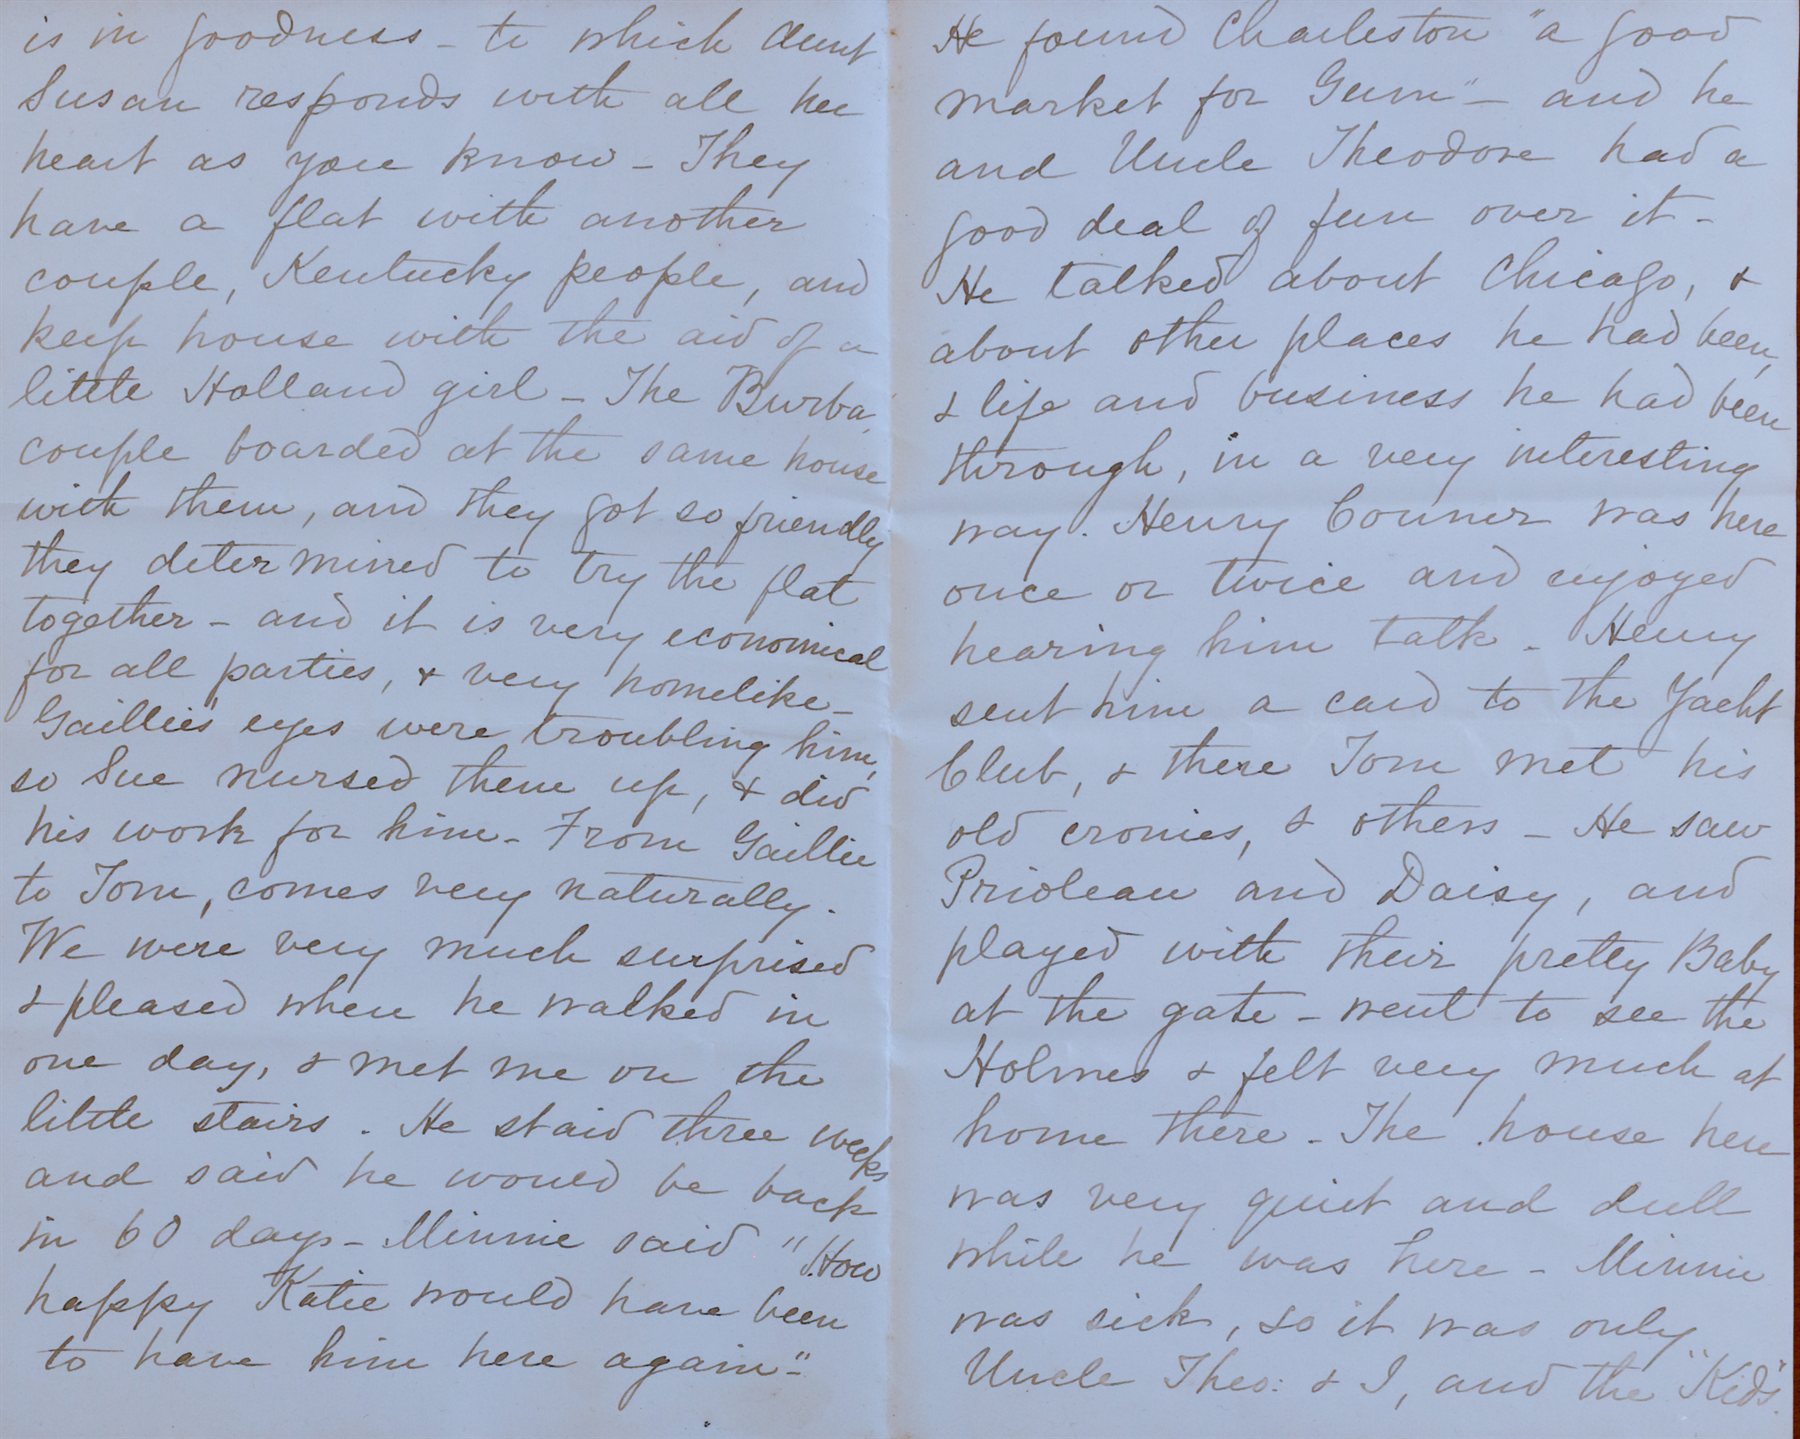 is in goodness - to which Aunt
Susan responds with all her
heart as you know - They
have a flat with another
couple, Kentucky people, and
keep house with the aid of a
little Holland girl - The Burba
couple boarded at the same house
with them, and they got so friendly
they determined to try the flat
together - and it is very economical
for all parties, & very homelike -
Gaillie's eyes were troubling him,
so Sue nursed them up, & did
his work for him - From Gaillie
to Tom, comes very naturally.
We were very much surprised
& pleased when he walked in
one day, & met me on the
little stairs. He staid three weeks
and said he would be back
in 60 days - Minnie said "How
happy Katie would have been
to have him here again" -
He found Charleston "a good
market for Gum" - and he
and Uncle Theodore had a
good deal of fun over it -
He talked about Chicago, &
about other places he had been,
& life and business he had been
through, in a very interesting
way. Henry Conner was here
once or twice and enjoyed
hearing him talk - Henry
sent him a card to the Yacht
Club, & there Tom met his
old cronies, & others - He saw
Prioleau and Daisy, and
played with their pretty Baby
at the gate - went to see the
Holmes & felt very much at
home there - The house here
was very quiet and dull
while he was here - Minnie
was sick, so it was only
Uncle Theo: & I, and the "Kids".